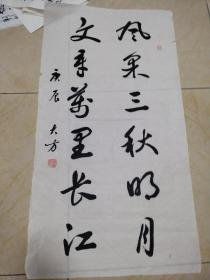 风采三秋明月
文章万里长江
庚辰 大方